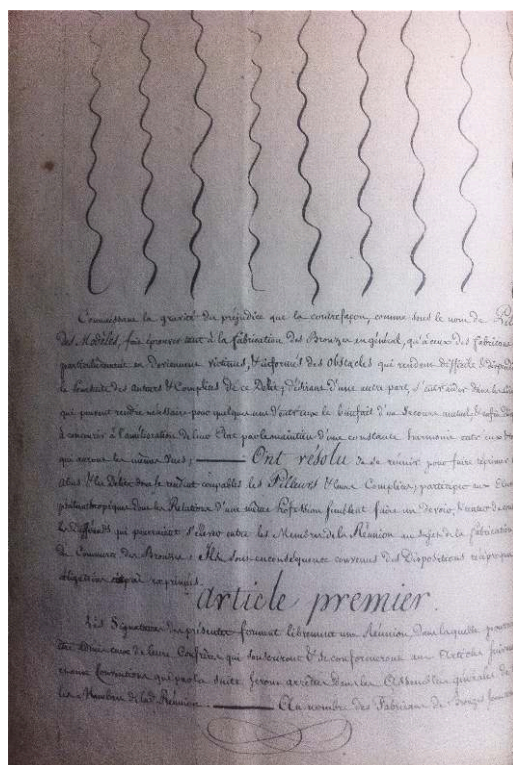 Connaissant la gravité du préjudice que la contrefaçon, connue sous le nom de
des Modèles, fait éprouver tant à la fabrication des Bronzes en général, qu'à ceux des fabricans
particulièrement en deviennent victimes, & informés des obstacles qui rendent difficile
des auteurs & Complices de ce Délit; désirant d'une autre part, s'entr'aider dans les
qui peuvent rendre nécessaire pour quelques uns d'entr'eux le bienfait d'un Secours mutuel, & enfin
à concourir à l'amélioration de leur État par le maintien d'une constante harmonie entre eux
qui auront les mêmes vues; ——— Ont résolu de se réunir pour faire réprimer
abus & les Délits dont se rendent coupables les Pilleurs & leurs Complices; participer aux
philantropiques dont les Relations d'une même Profession finissent faire un devoir, &
les différends qui pourraient s'élever entre les Membres de la Réunion au sujet de la fabrication
du Commerce des Bronzes; Ils sont en conséquence convenus des Dispositions
obligations exprimées.
article premier.
Les Signataires du présent forment librement une Réunion, dans laquelle
être admis ceux de leurs Confrères qui souscriront & se conformeront aux Articles
qui par la suite seront arrêtés dans les Assemblées générales de
les Membres de lad. Réunion. ——— Au nombre des Fabricans de Bronzes